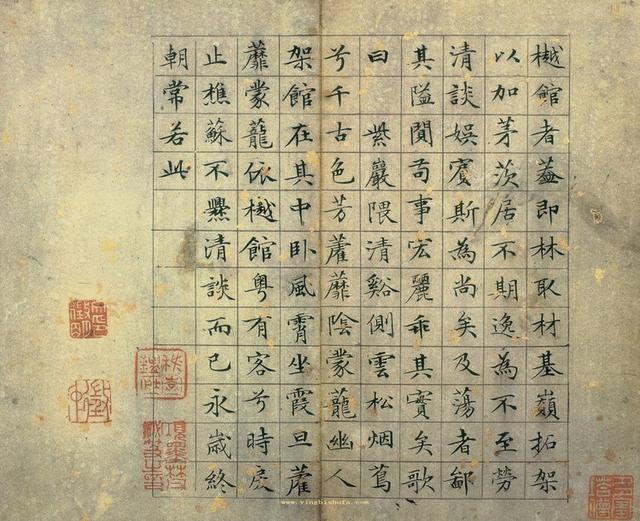 樾館者蓋即林取材基巔拓架
以加茅茨居不期逸為不至勞
清談娛賓斯為尚矣及蕩者鄙
其隘閴苟事宏麗乖其實矣歌
曰 紫巖隈清谿側雲松烟蔦
兮千古色芳藿蘼陰蒙龍幽人
架館在其中卧風霄坐霞旦藿
蘼蒙龍依樾館粵有客兮時戾
止樵蘇不爨清談而已永歲終
朝常若此
www.yingbishufa.com